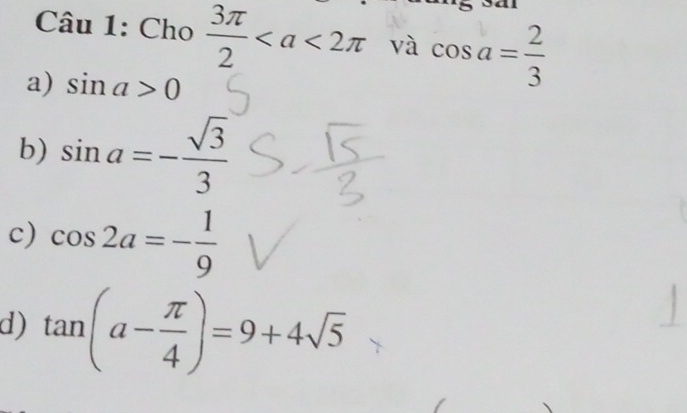 Câu 1: Cho 3π/2 < a < 2π và cos a = 2/3
a) sin a > 0 S
b) sin a = -√3/3 S -√5/3
c) cos 2a = -1/9 V
d) tan(a - π/4) = 9 + 4√5
1